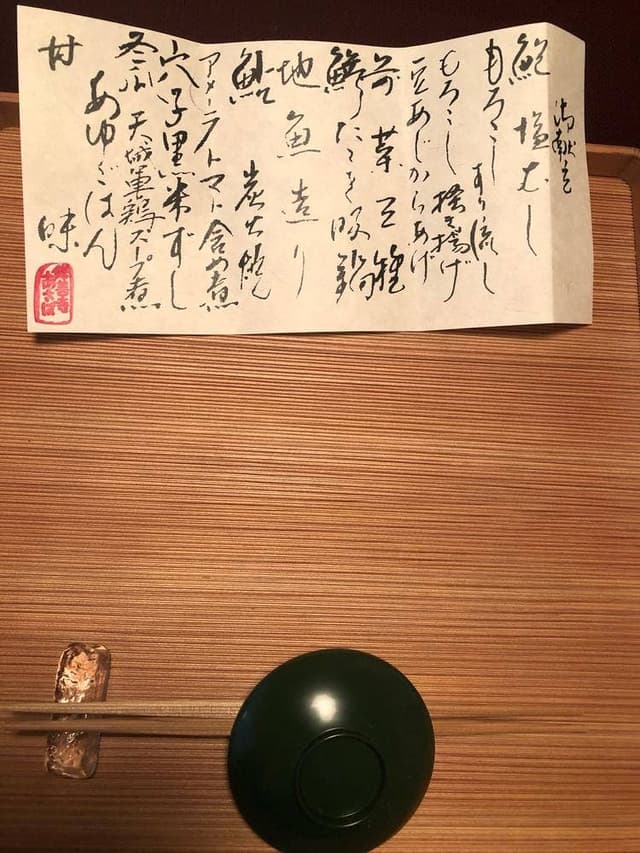 御献立
鮑 塩むし
もろこし すり流し
もろこし 掻き揚げ
豆あじからあげ
前菜三種
鱧
地魚造り
鮎 炭火焼
アメーラトマト含め煮
穴子黒米ずし
冬瓜 天城軍鶏スープ煮
あゆごはん
甘味